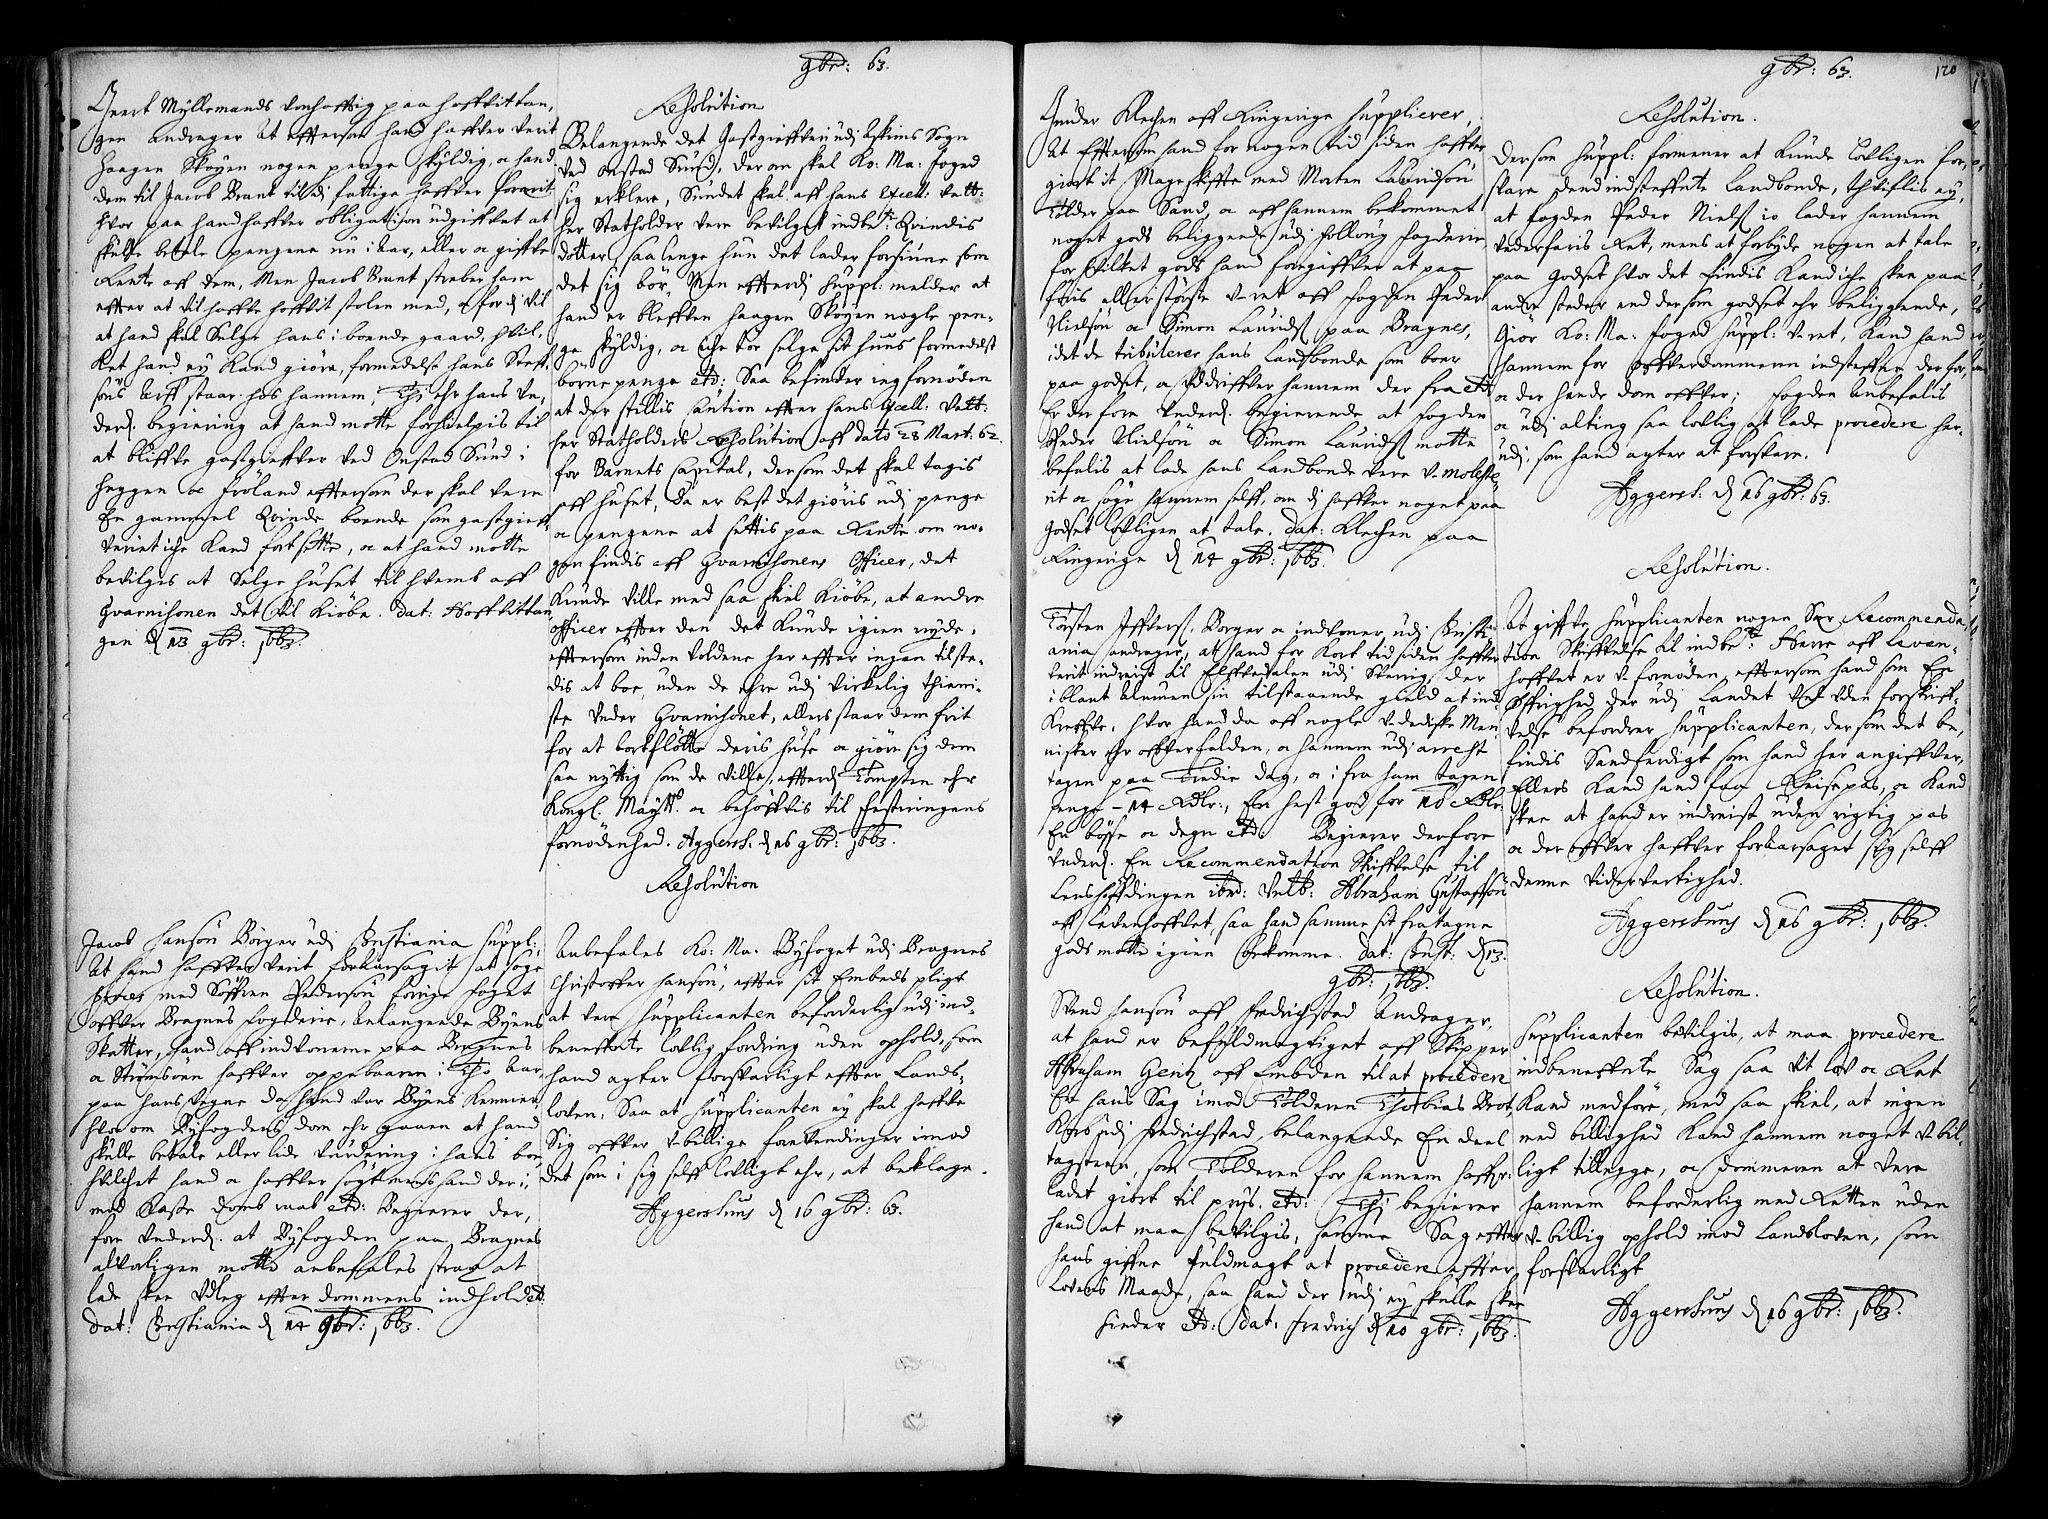 9br: 63.
Geert Mÿllemands vonhafftig paa hoffvittan,
gen andrager At effterson hand haffver verit
haagen Skoyen nogen penge skÿldig, oc hand
dem til Jacob Brant
hvor paa hand haffver obligation udgiffvet at
skulle betale pengene nu i Aar, eller oc giffve
Rente aff dem, Men Jacob Brant streber ham
effter at vil haffve hoffvit stolen med, oc fordj vil
at hand skal Selge hans i boende gaard, hvil,
ket hand eÿ Kand giøre, formedelst hans Steff,
søns Arff staar hos hannem, Thj ehr hans Un,
derd: begiering at hand motte forhielpis til
at bliffve gastgieffver ved Onstad Sund i
heggen oc Frøland efftersom der skal vere
En gammel Qvinde boende som gastgieff,
veriet iche Kand fortsette, oc at hand motte
bevilgis at Selge huset til hvemb aff
Gvarnisonen det vil Kiøbe. Dat: Hoffvittan
gen d 13 9br: 1663.
Jacob Hansøn Borger udj Christiania suppl:
At hand haffver verit foraarsagit at søge
proces med Søffren Pedersøn forrige foget
offver Bragnes fogderie, belangende Bÿens
Skatter, hand aff indvonerne paa Bragnes
oc Strømsoen haffver oppebaaren i Tho Aar
paa hans Vegne da hand var Bÿens Kemner
hvor om Bÿfogdens dom ehr gaaen at hand
skulle betale eller lide Vurdering i hans boe
hvilchet hand oc haffver søgt mens hand der i,
mod Etd: Begierer der,
fore Underd: at Bÿfogden paa Bragnes
alvorligen motte anbefales strax at
lade skee Udleg effter dommens indhold etd.
Dat: Christiania d 14 9br: 1663.
Resolution
Belangende det Gastgieffveri udj Askims Sogn
ved Onstad Sund, der om skal Ko: Ma: foged
sig erklere, Sundet skal aff hans Excell: Velb:
her Statholder vere bevilget indbte: Qvindis
dotter saa lenge hun det lader forsiune som
det sig bør, Men efftersom Suppl: melder at
hand er bleffven haagen Skoyen nogle pen,
ge skÿldig, oc iche tor selge sit huus formedelst
børne penge etd: Saa befinder ieg fornøden
at der stillis Caution effter hans Excell: Velb:
her Statholders Resolution aff dato 28 Mart: 62.
for Barnets Capital, dersom det skal tagis
aff huset, da er best det giøris udj penge
oc pengene at settis paa Rente. om no,
gen findis aff Gvarnisonens Officer, det
Kunde ville med saa skiel Kiøbe, at andre
officer effter den det Kunde igien nÿde,
efftersom inden voldene her effter ingen tilste,
dis at boe, uden de ehre udj virkelig thieni,
ste under Gvarnisonet, ellers staar dem frit
for at bortflötte deris huse oc giøre sig dem
saa nÿttig som de ville, efftersom Tompten ehr
Kongl: Maÿtts: oc behøffvis til Festningens
fornödenhed. Aggersh: d 16 9br: 1663.
Resolution
Anbefales Ko: Ma: Bÿfoget udj Bragnes
Christoffer Hansøn, effter sit Embeds pligt
at vere Supplicanten beforderlig udj ind,
beneffnte lovlig fordring uden ophold, som
hand agter forsvarligt effter Lands,
loven, Saa at Supplicanten eÿ skal haffve
Sig offver U-billige forvendinger imod
det som i sig selff lovligt ehr, at beklage.
Aggershuus d 16 9br: 63.
9br: 63.
120
Gunder Klechen aff Ringerige Supplicerer,
At Efftersom hand for nogen tid siden haffver
giort it Mageskiffte med Morten Lauridsøn
Tolder paa Sand, oc aff hannem bekommet
noget gods beliggende udj Folloug fogderie
for hvilket gods hand foregiffver at paa
føris aller største U-ret aff fogden Peder
Nielsøn oc Simon Laurids: paa Bragnes,
idet de tribulerer hans Landbonde som boer
paa godset, oc Uddriffver hannem der fra etd:
Er derfore Underd: begierende at fogden
Peder Nielsøn oc Simon Laurids: motte
befalis at lade hans Landbonde vere U-moleste,
rit oc søge hannem selff, om dj haffver noget paa
godset lovligen at tale. Dat: Klechen paa
Ringerige d 14 9br: 1663.
Torsten Iffvers: Borger oc indvoner udj Christi,
ania andrager, att hand for Kort tid siden haffver
verit indreist til Elffvedalen udj Sverrig der
iblant Almuen sin tilstaaende gield at ind
Kreffve, hvor hand da aff nogle U-dediske Men
nisker ehr offverfalden, oc hannem udj arrest
tagen paa Tredie dag, oc ifra ham tagen
penge – 14 Rdlr:, En hest god for 10 Rdlr:
En bøsse oc degn etd: Begierer derfore
Underd: En Recommendation Skriffvelse til
Lenshøffdingen ibid: Velb: Abraham Gustaffsøn
aff Levenhoffvet, saa hand samme sit fratagne
gods motte igien bekomme. Dat: Christ: d 13.
9br: 1663.
Svend Hansøn aff Fredrichstad Andrager,
at hand er befuldmegtiget aff Skipper
Abraham Geritz aff Embden til at procedere
En hans Sag imod Tolderen Thobias Brot,
Kors udj Fredrichstad belangende En deel
tagsteen, som Tolderen for hannem haffr:
ladet giort til priis. etd: Thj begierer
hand at maa bevilgis, samme Sag effter
hans giffne fuldmagt at procedere effter
Lovens Maade, saa hand der udj eÿ skulle skee
hinder etd: Dat: Fredrich d 10 9br: 1663.
Resolution.
Dersom Suppl: formener at Kunde lovligen for,
svare dend indsteffnte Landbonde, thviffles eÿ,
at fogden Peder Niels: jo lader hannem
vederfaris Ret, mens at forbÿde nogen at tale
paa Godset hvor det findis Kand iche skee paa
andre steder end dersom godset ehr beliggende,
Giør Ko: Ma: foged Suppl: U-ret, Kand hand
hannem for offverdommeren indsteffne derfor,
oc der hende dom offver; fogden Anbefalis
oc udj alting saa lovlig at lade procedere her,
udj, som hand agter at forsvare.
Aggersh: d 16 9br: 63.
Resolution.
At giffve Supplicanten nogen Sær Recommenda,
tion Skriffvelse til indbete: Herre aff Leven,
hoffvet er U-fornøden, efftersom hand som En
Øffrighed der udj Landet vel uden forskriff,
velse befordrer Supplicanten, dersom det be,
findis Sandferdigt som hand her angiffver,
Ellers Kand hand faa Reisepas, oc Kand
skee at hand er indreist uden rigtig pas
oc der offver haffver foraarsaget sig selff
denne Vidervertighed.
Aggershuus d 16 9br: 1663.
Resolution.
Supplicanten bevilgis, at maa procedere
indbeneffnte Sag saa vit lov oc Ret
Kand medføre, med saa skiel, at ingen
med billighed Kand hannem noget U-bil,
ligt tillegge, oc Dommeren at vere
hannem beforderlig med Retten uden
U-billig ophold imod Landsloven, som
forsvarligt
Aggershuus d 16 9br: 1663.